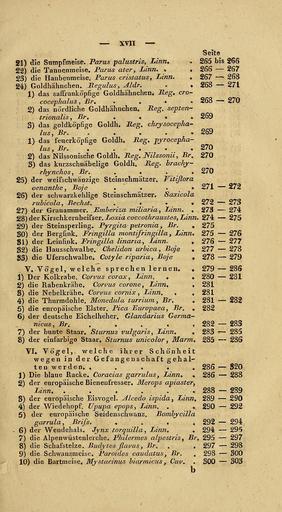 — XVII —
Seite
21) die Sumpfmeise. Parus palustris, Linn. . 265 bis 266
22) die Tannenmeise. Parus ater, Linn. . . 266 — 267
23) die Haubenmeise. Parus cristatus, Linn. . 267 — 268
24) Goldhähnchen. Regulus, Aldr. . . 268 — 271
1) das saffranköpfige Goldhähnchen. Reg. cro-
cocephalus, Br. . . . . 268 — 270
2) das nördliche Goldhähnchen. Reg. septen-
trionalis, Br. . . . . 269
3) das goldköpfige Goldh. Reg. chrysocepha-
lus, Br. . . . . 269
1) das feuerköpfige Goldh. Reg. pyrocepha-
lus, Br. . . . . 270
2) das Nilssonische Goldh. Reg. Nilssonii, Br. 270
3) das kurzschnäbelige Goldh. Reg. brachy-
rhynchos, Br. . . . . 270
25) der weifsschwänzige Steinschmätzer. Vitiflora
oenanthe, Boje . . . . 271 — 272
26) der schwarzkehlige Steinschmätzer. Saxicola
rubicola, Bechst. . . . . 272 — 273
27) der Grauammer. Emberiza miliaria, Linn. . 273 — 274
28) der Kirschkernbeifser. Loxia coccothraustes, Linn. 274 — 275
29) der Steinsperling. Pyrgita petronia, Br. . 275
30) der Bergfink. Fringilla montifringilla, Linn. . 275 — 276
31) der Leinfink. Fringilla linaria, Linn. . 276 — 277
32) die Hausschwalbe. Chelidon urbica, Boje . 277 — 278
33) die Uferschwalbe. Cotyle riparia, Boje . 278 — 279
V. Vögel, welche sprechen lernen. . 279 — 286
1) Der Kolkrabe. Corvus corax, Linn. . . 280 — 281
2) die Rabenkrähe. Corvus corone, Linn. . 281
3) die Nebelkrähe. Corvus cornix, Linn. . 281
4) die Thurmdohle. Monedula turrium, Br. . 281 — 282
5) die europäische Elster. Pica Europaea, Br. . 282
6) der deutsche Eichelheher. Glandarius Germa-
nicus, Br. . . . . 282 — 283
7) der bunte Staar. Sturnus vulgaris, Linn. . 283 — 285
8) der einfarbige Staar. Sturnus unicolor, Marm. 285 — 286
VI. Vögel, welche ihrer Schönheit
wegen in der Gefangenschaft gehal-
ten werden. . . . . 286 — 320
1) Die blaue Racke. Coracias garrulus, Linn. . 286 — 288
2) der europäische Bienenfresser. Merops apiaster,
Linn. . . . . 288 — 289
3) der europäische Eisvogel. Alcedo ispida, Linn. 289 — 290
4) der Wiedehopf. Upupa epops, Linn. . . 290 — 292
5) der europäische Seidenschwanz. Bombycilla
garrula, Briſs. . . . . 292 — 294
6) der Wendehals. Jynx torquilla, Linn. . 294 — 295
7) die Alpenwüstenlerche. Philermos alpestris, Br. 295 — 297
8) die Schafstelze. Budytes flavus, Br. . . 297 — 298
9) die Schwanzmeise. Paroides caudatus, Br. . 298 — 300
10) die Bartmeise. Mystacinus biarmicus, Cuv. . 300 — 303
b